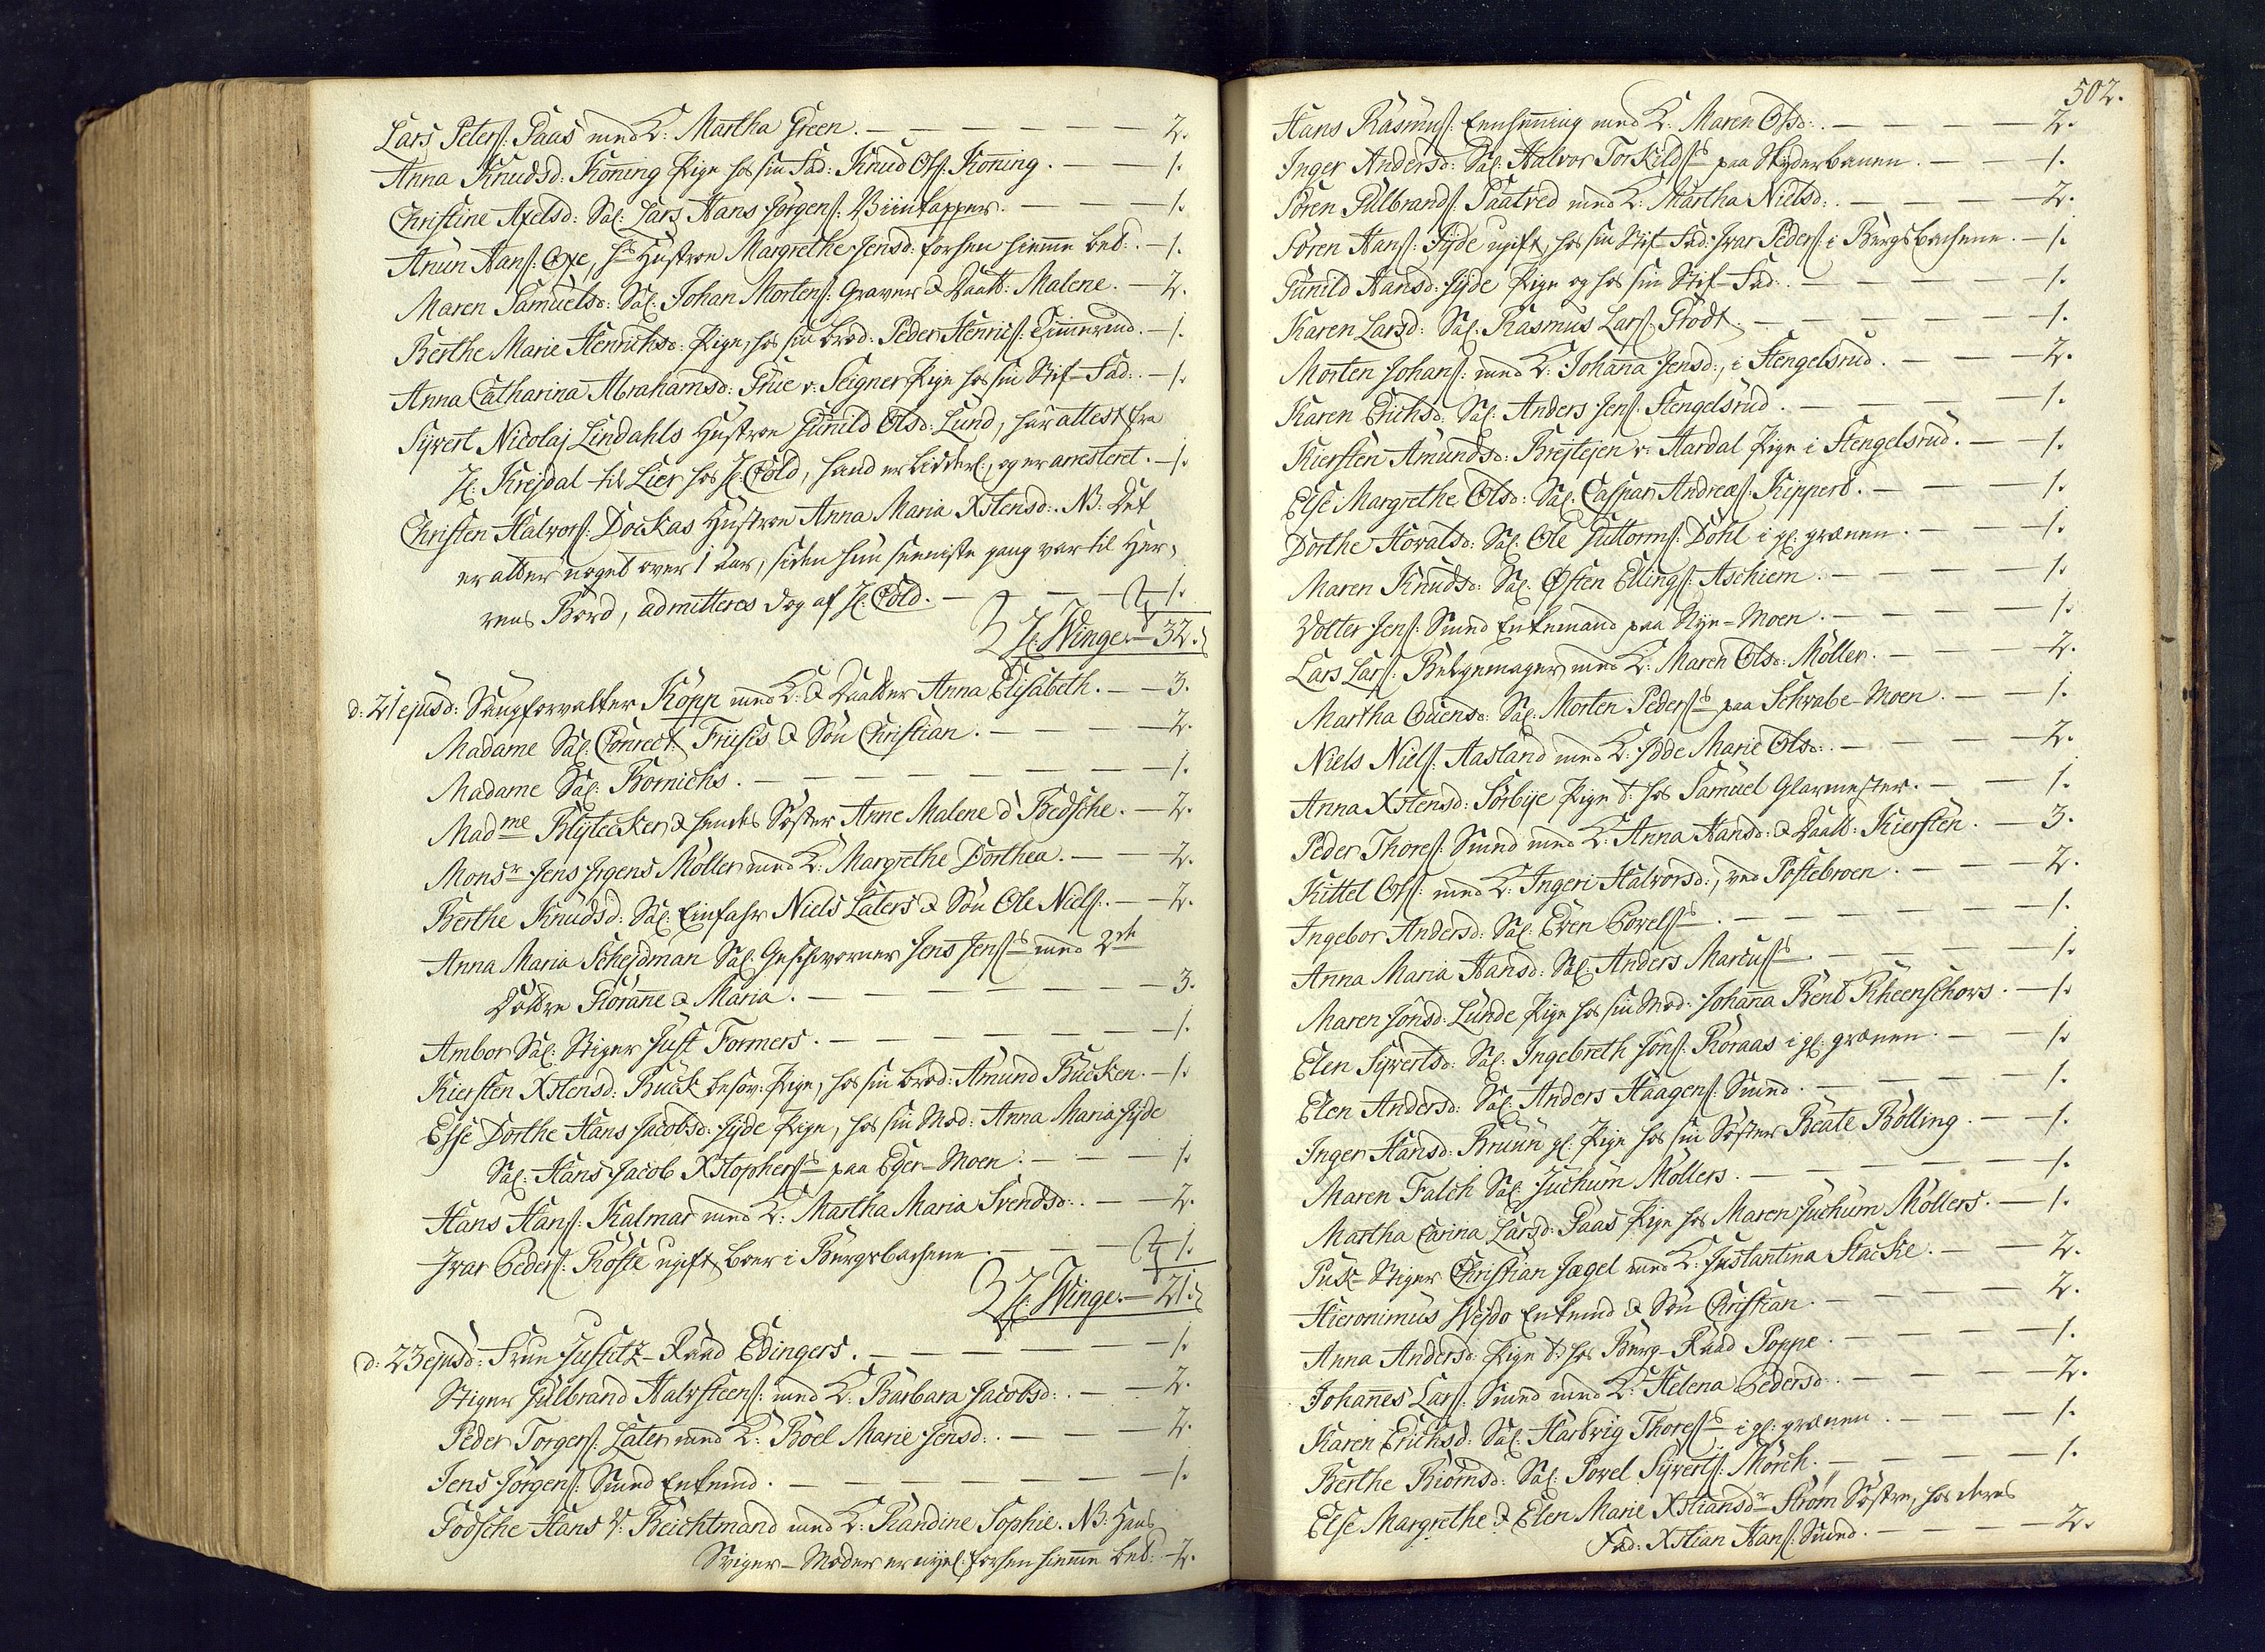 Lars Peters: Paas med K: Martha Green. — 2.
Anna Knudsd: Koning Pige hos sin Fad: Knud Ols: Koning. — 1.
Christine Axelsd: Sal: Lars Hans Jörgens: Viintapper. — 1.
Anun Hans: Oxe, Hustroe Margrethe Jensd: forhen hiemme bet:. — 1.
Maren Samuelsd: Sal: Johan Mortens: Graver & Daatt: Malene. — 2.
Berthe Marie Henrichsd: Pige, hos sin brod: Peder Henrics: Timmermd. — 1.
Anna Catharina Abrahamsd: True v: Seigner Pige hos sin Stif-Fad:. — 1.
Syvert Nicolaj Lindahls Hustroe Gunild Olsd: Lund, har attest fra
H: Krejdal til Lier hos H: Cold, hand er liderl:, og er arresteret. — 1.
Christen Halvors: Dockas Hustroe Anna Maria Xstensd:. NB: Det
er atter noget over 1 aar, siden hun seeniste gang var til Her,
rens Bord, admitteres dog af H: Cold. — 1.
H: Winge. — 32.
d: 21 ejusd: Saugforvalter Kopp med K: & Daatter Anna Elisabeth. — 3.
Madame Sal: Conrect: Friises & Sön Christian. — 2.
Madame Sal: Bornichs. — 1.
Madme Blytecker & hendes Söster Anne Malene d' Bedsche. — 2.
Monsr Jens Irgens Möller med K: Margrethe Dorthea. — 2.
Berthe Knudsd: Sal: Einfahr Niels Laters & Sön Ole Niels:. — 2.
Anna Maria Schejdman Sal: Geschworner Jens Jens: med 2de
Döttre Florane & Maria. — 3.
Ambor Sal: Stiger Just Formers. — 1.
Kiersten Xstensd: Buck besov: Pige, hos sin brod: Amund Bucken. — 1.
Else Dorthe Hans Jacobsd: Jyde Pige, hos sin Mod: Anna Maria Jyde
Sal: Hans Jacob Xstophers: paa Eger-Moen. — 1.
Hans Hans: Kalmar med K: Martha Maria Svendsd:. — 2.
Ivar Peders: Röste ugift, boer i Bergsbachene. — 1.
H: Winge. — 21.
d: 23 ejusd: Frue Justitz-Raad Edingers. — 1.
Stiger Gulbrand Halvsteens: med K: Barbara Jacobsd:. — 2.
Peder Torgers: Later med K: Boel Marie Jensd:. — 2.
Jens Jörgens: Smed Enkemd. — 1.
Godsche Hans V: Beichtmand med K: Randine Sophie. NB: Hans
Sviger-Moder er nyel: forhen hiemme bet: — 2.
502.
Hans Rasmus: med K: Maren Olsd:. — 2.
Inger Andersd: Sal: Halvor Torkilds: paa Skyderbanen. — 1.
Sören Pålbrands: Saatved med K: Martha Nielsd:. — 2.
Sören Hans: Jyde ugift, hos sin Stif-Fad: Ivar Peders: i Bergsbachene. — 1.
Gunild Hansd: Jyde Pige og hos sin Stif-Fad:. — 1.
Karen Larsd: Sal: Rasmus Lars: Grodt. — 1.
Morten Johans: med K: Johana Jensd:, i Stengelsrud. — 2.
Karen Erichsd: Sal: Anders Jens: Stengelsrud. — 1.
Kiersten Amundsd: Brejtejen v: Aardal Pige i Stengelsrud. — 1.
Else Margrethe Olsd: Sal: Caspar Andreas: Kippers. — 1.
Dorthe Hovalsd: Sal: Ole Guttorms: Dohl i gl: grænen. — 1.
Maren Knudsd: Sal: Østen Ellings: Aschiem. — 1.
Volter Jens: Smed Enkemand paa Nye-Moen. — 1.
Lars Lars: Belgemager med K: Maren Olsd: Möller. — 2.
Martha Ouensd: Sal: Morten Peders: paa Schwabe-Moen. — 1.
Niels Niels: Aasland med K: Idde Marie Olsd:. — 2.
Anna Xstensd: Sorbye Pige t: hos Samuel Glarmester. — 1.
Peder Thores: Smed med K: Anna Hansd: & Daatt: Kiersten. — 3.
Kittel Ols: med K: Ingeri Halvorsd:, ved Postebroen. — 2.
Ingebor Andersd: Sal: Even Povels: — 1.
Anna Maria Hansd: Sal: Anders Marcus: — 1.
Maren Jonsd: Lunde Pige hos sin Mod: Johanna Bent Rheenschous. — 1.
Elen Syvertsd: Sal: Ingebreth Jöns: Röraas i gl: grænen. — 1.
Elen Andersd: Sal: Anders Haagens: Smed. — 1.
Inger Hansd: Bruun gl: Pige hos sin Söster Beate Bölling. — 1.
Maren Falch Sal: Juchum Möllers. — 1.
Martha Carina Larsd: Paas Pige hos Maren Juchum Möllers. — 1.
Puk-Stiger Christian Jægel med K: Justantina Stacke. — 2.
Hieronimus Wejdo Enkemd & Sön Christian. — 2.
Anna Andersd: Pige t: hos Berg-Raad Poppe. — 1.
Johannes Lars: Smed med K: Helena Pedersd:. — 2.
Karen Erichsd: Sal: Hartvig Thores: i gl: grænen. — 1.
Berthe Biörnsd: Sal: Povel Syverts: Mörch. — 1.
Else Margrethe & Elen Marie Xstiansdr Ström Söstre, hos deres
Fad: Xstian Hans: Smed. — 2.